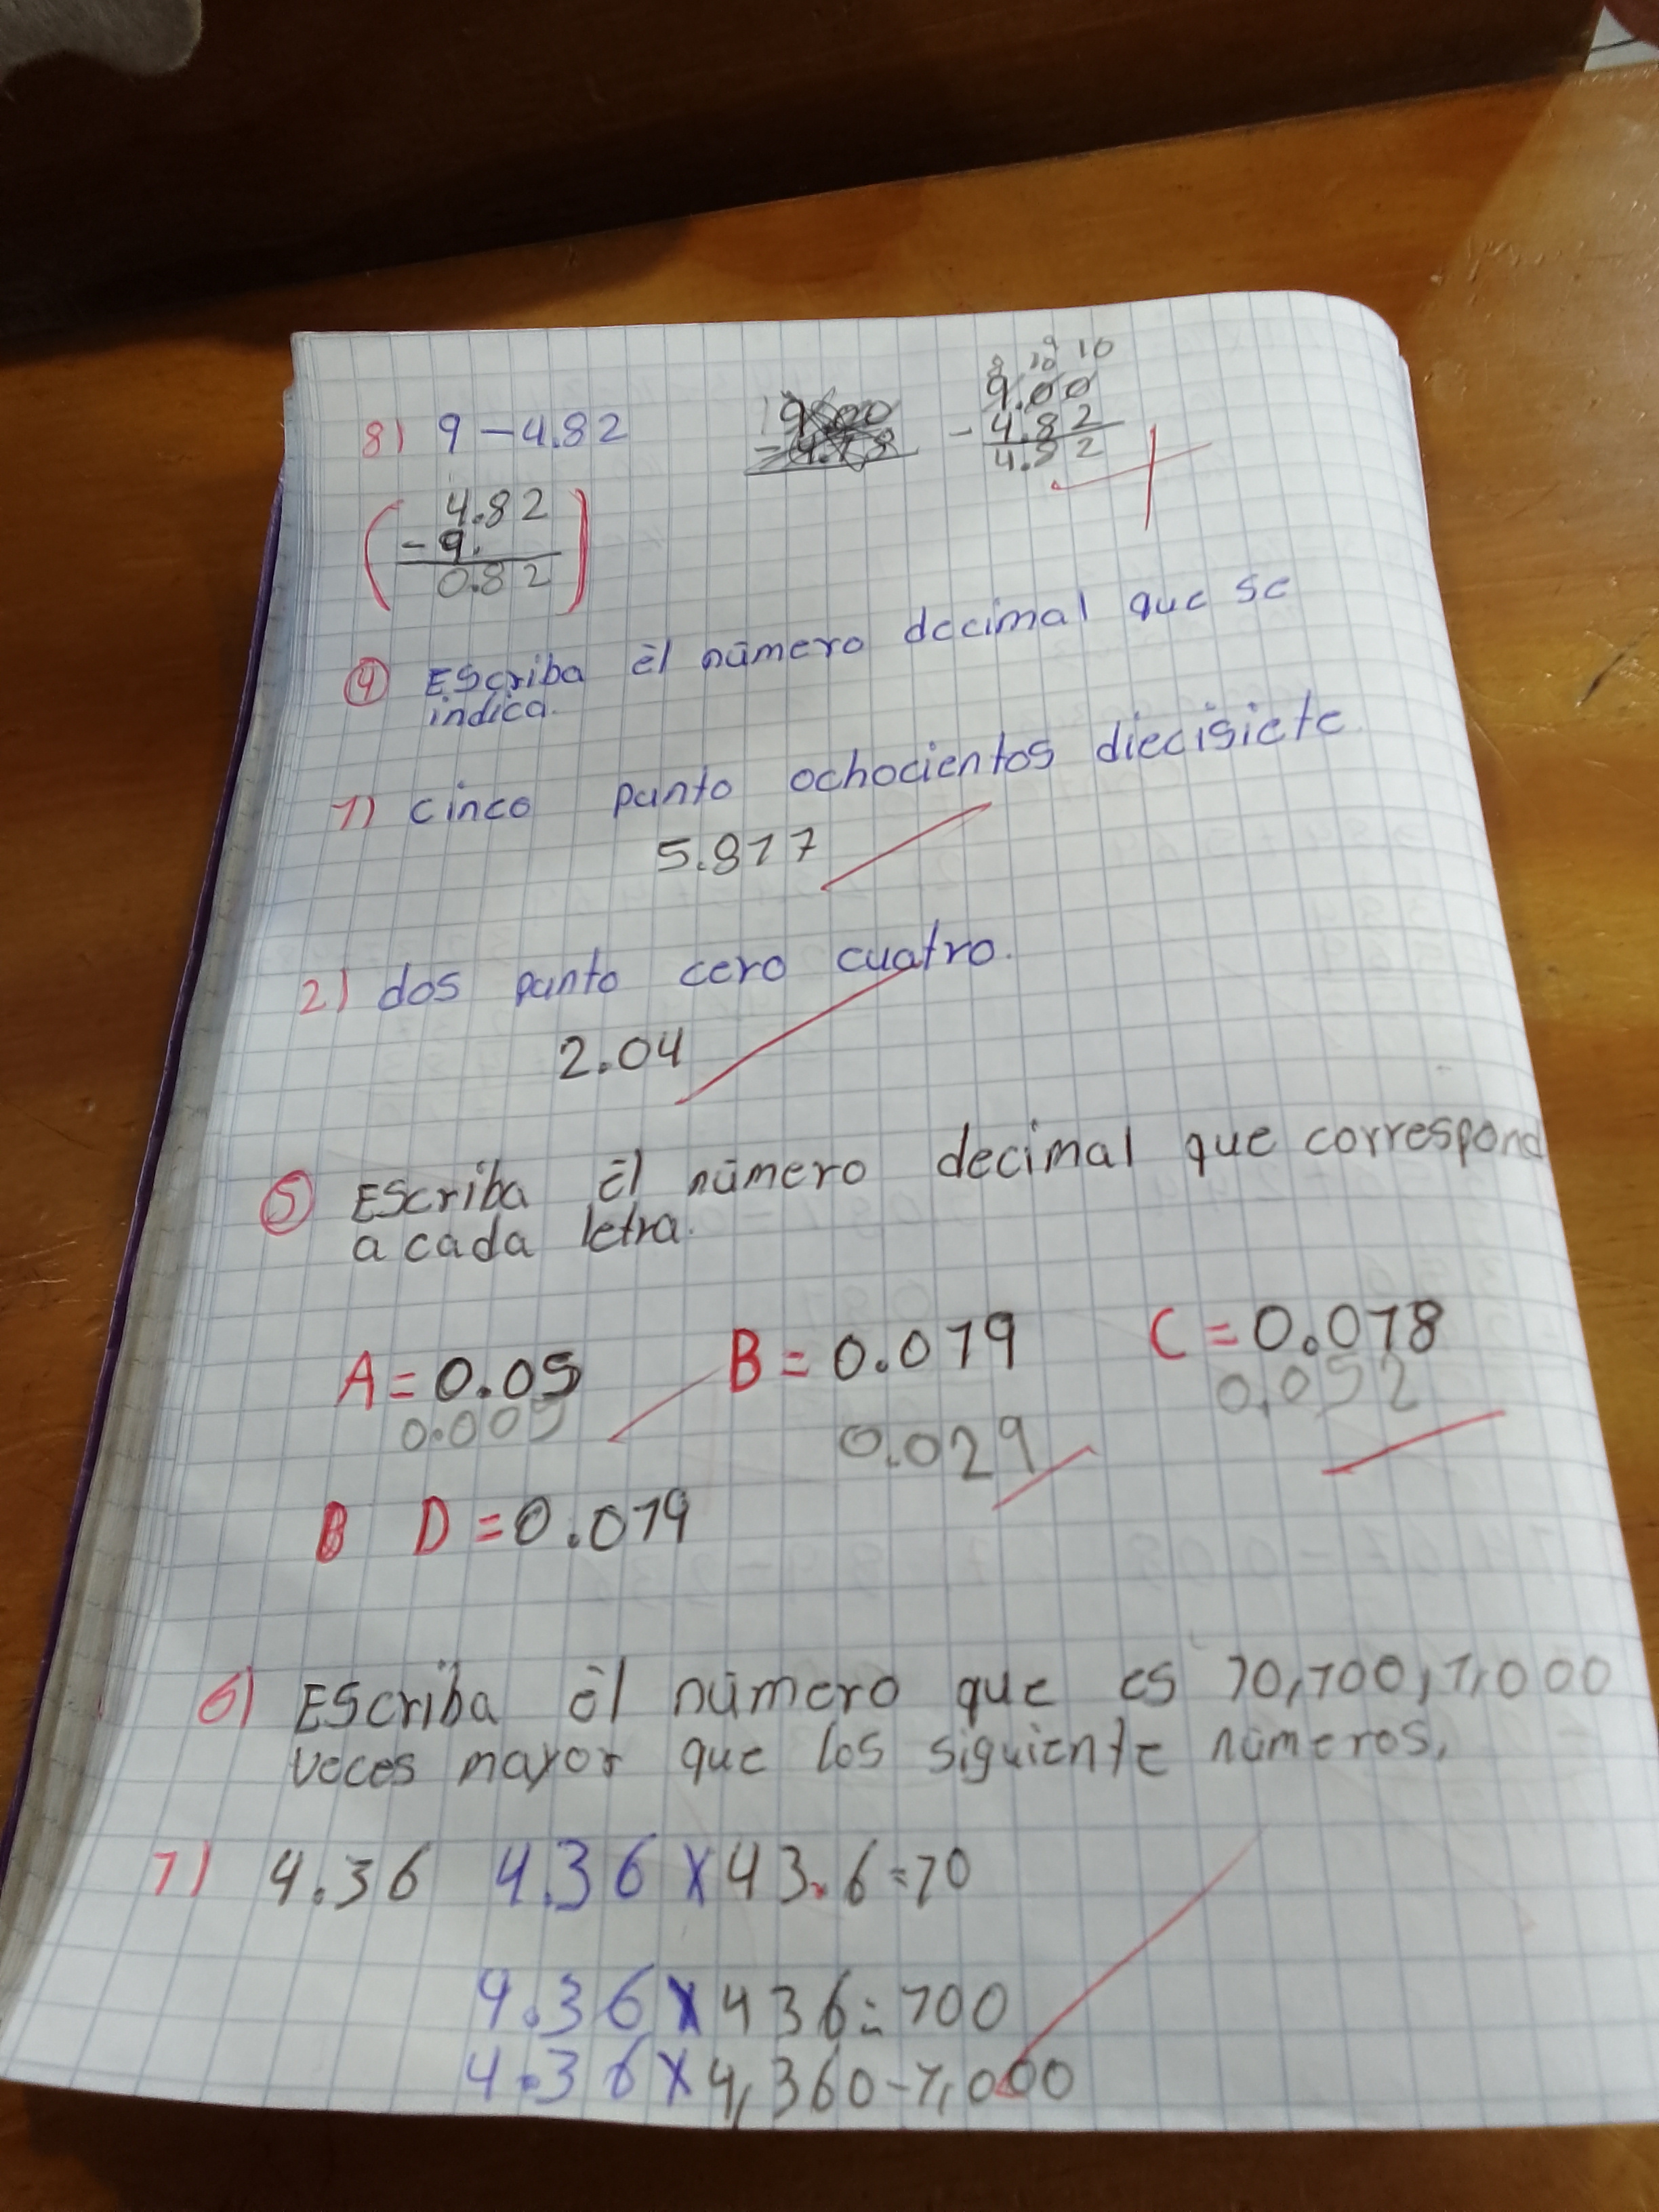 8) 9 - 4.82
8 9 10 10
9.00
- 4.82
4.32
4.82
- 9.
0.82
④ Escriba el número decimal que se
indica.
1) cinco punto ochocientos diecisiete
5.817
2) dos punto cero cuatro.
2.04
⑤ Escriba el número decimal que correspond
a cada letra.
A = 0.05 B = 0.019 C = 0.018
0.005 0.029 0,052
B D = 0.019
6) Escriba el número que es 10,100,1,000
veces mayor que los siguiente números,
1) 4.36 4.36 x 43.6 = 10
4.36 x 436 = 100
4.36 x 4,360 - 1,000